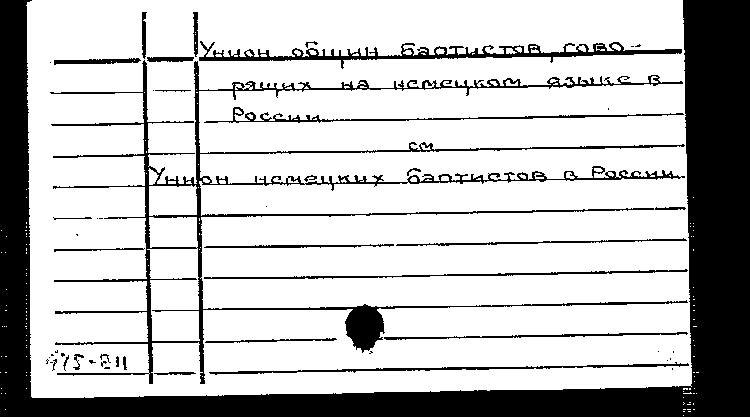 Унион общин баптистов, гово-
рящих на немецком языке в
России
см
Унион немецких баптистов в России
975-811